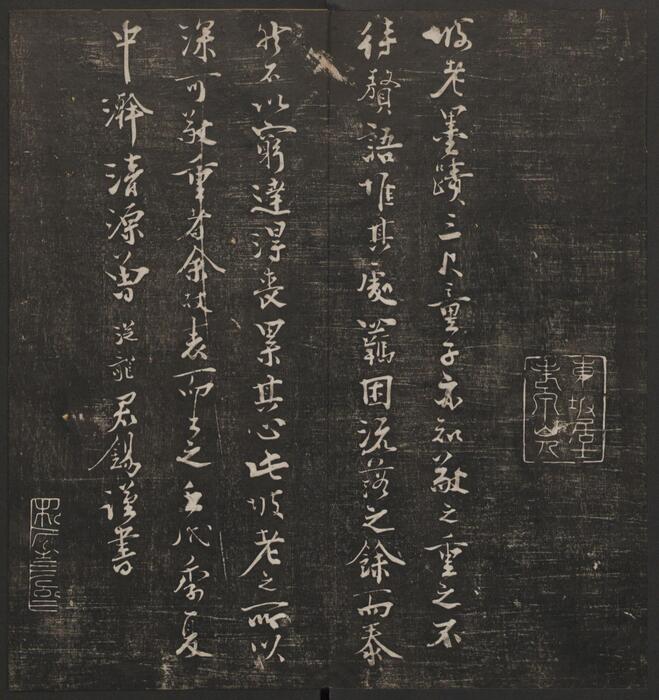 坡老墨蹟三尺童子亦知敬之重之不
待贅語惟其處羈困流落之餘而泰
然不以窮達得喪累其心此坡老之所以
深可敬重者余故表而出之至代季夏
中澣清源曾從龍君錫謹書